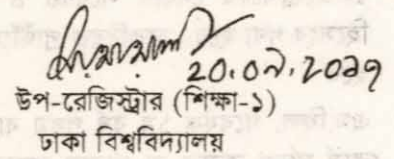 ২০.০৯.২০১৭
উপ-রেজিস্ট্রার (শিক্ষা-১)
ঢাকা বিশ্ববিদ্যালয়